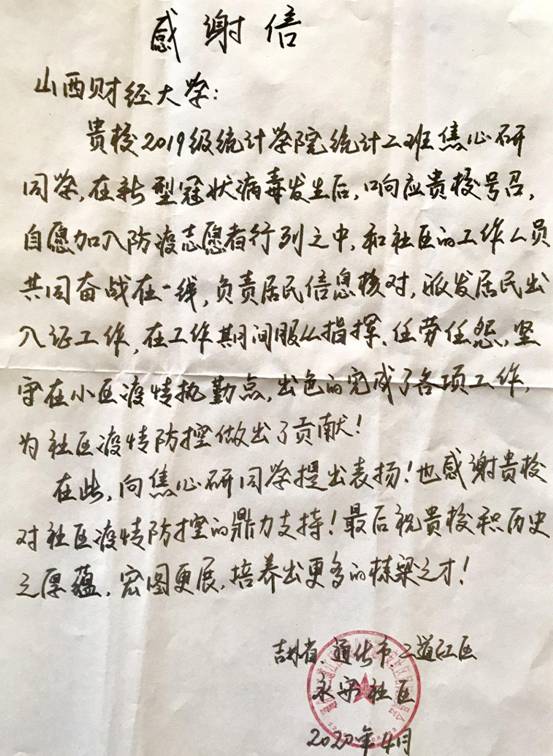 感谢信
山西财经大学：
贵校2019级统计学院统计二班焦心研
同学，在新型冠状病毒发生后，响应贵校号召，
自愿加入防疫志愿者行列之中，和社区的工作人员
共同奋战在一线，负责居民信息核对，派发居民出
入证工作，在工作期间服从指挥、任劳任怨，坚
守在小区疫情执勤点，出色的完成了各项工作，
为社区疫情防控做出了贡献！
在此，向焦心研同学提出表扬！也感谢贵校
对社区疫情防控的鼎力支持！最后祝贵校积历史
之厚蕴，宏图更展，培养出更多的栋梁之才！
吉林省：通化市二道江区
永安社区
2020年4月